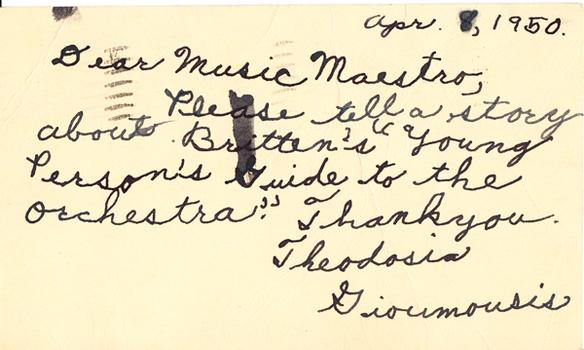 Apr. 8, 1950.
Dear Music Maestro,
Please tell a story
about Britten's "Young
Person's Guide to the
Orchestra." Thankyou.
Theodosia
Gioumousis